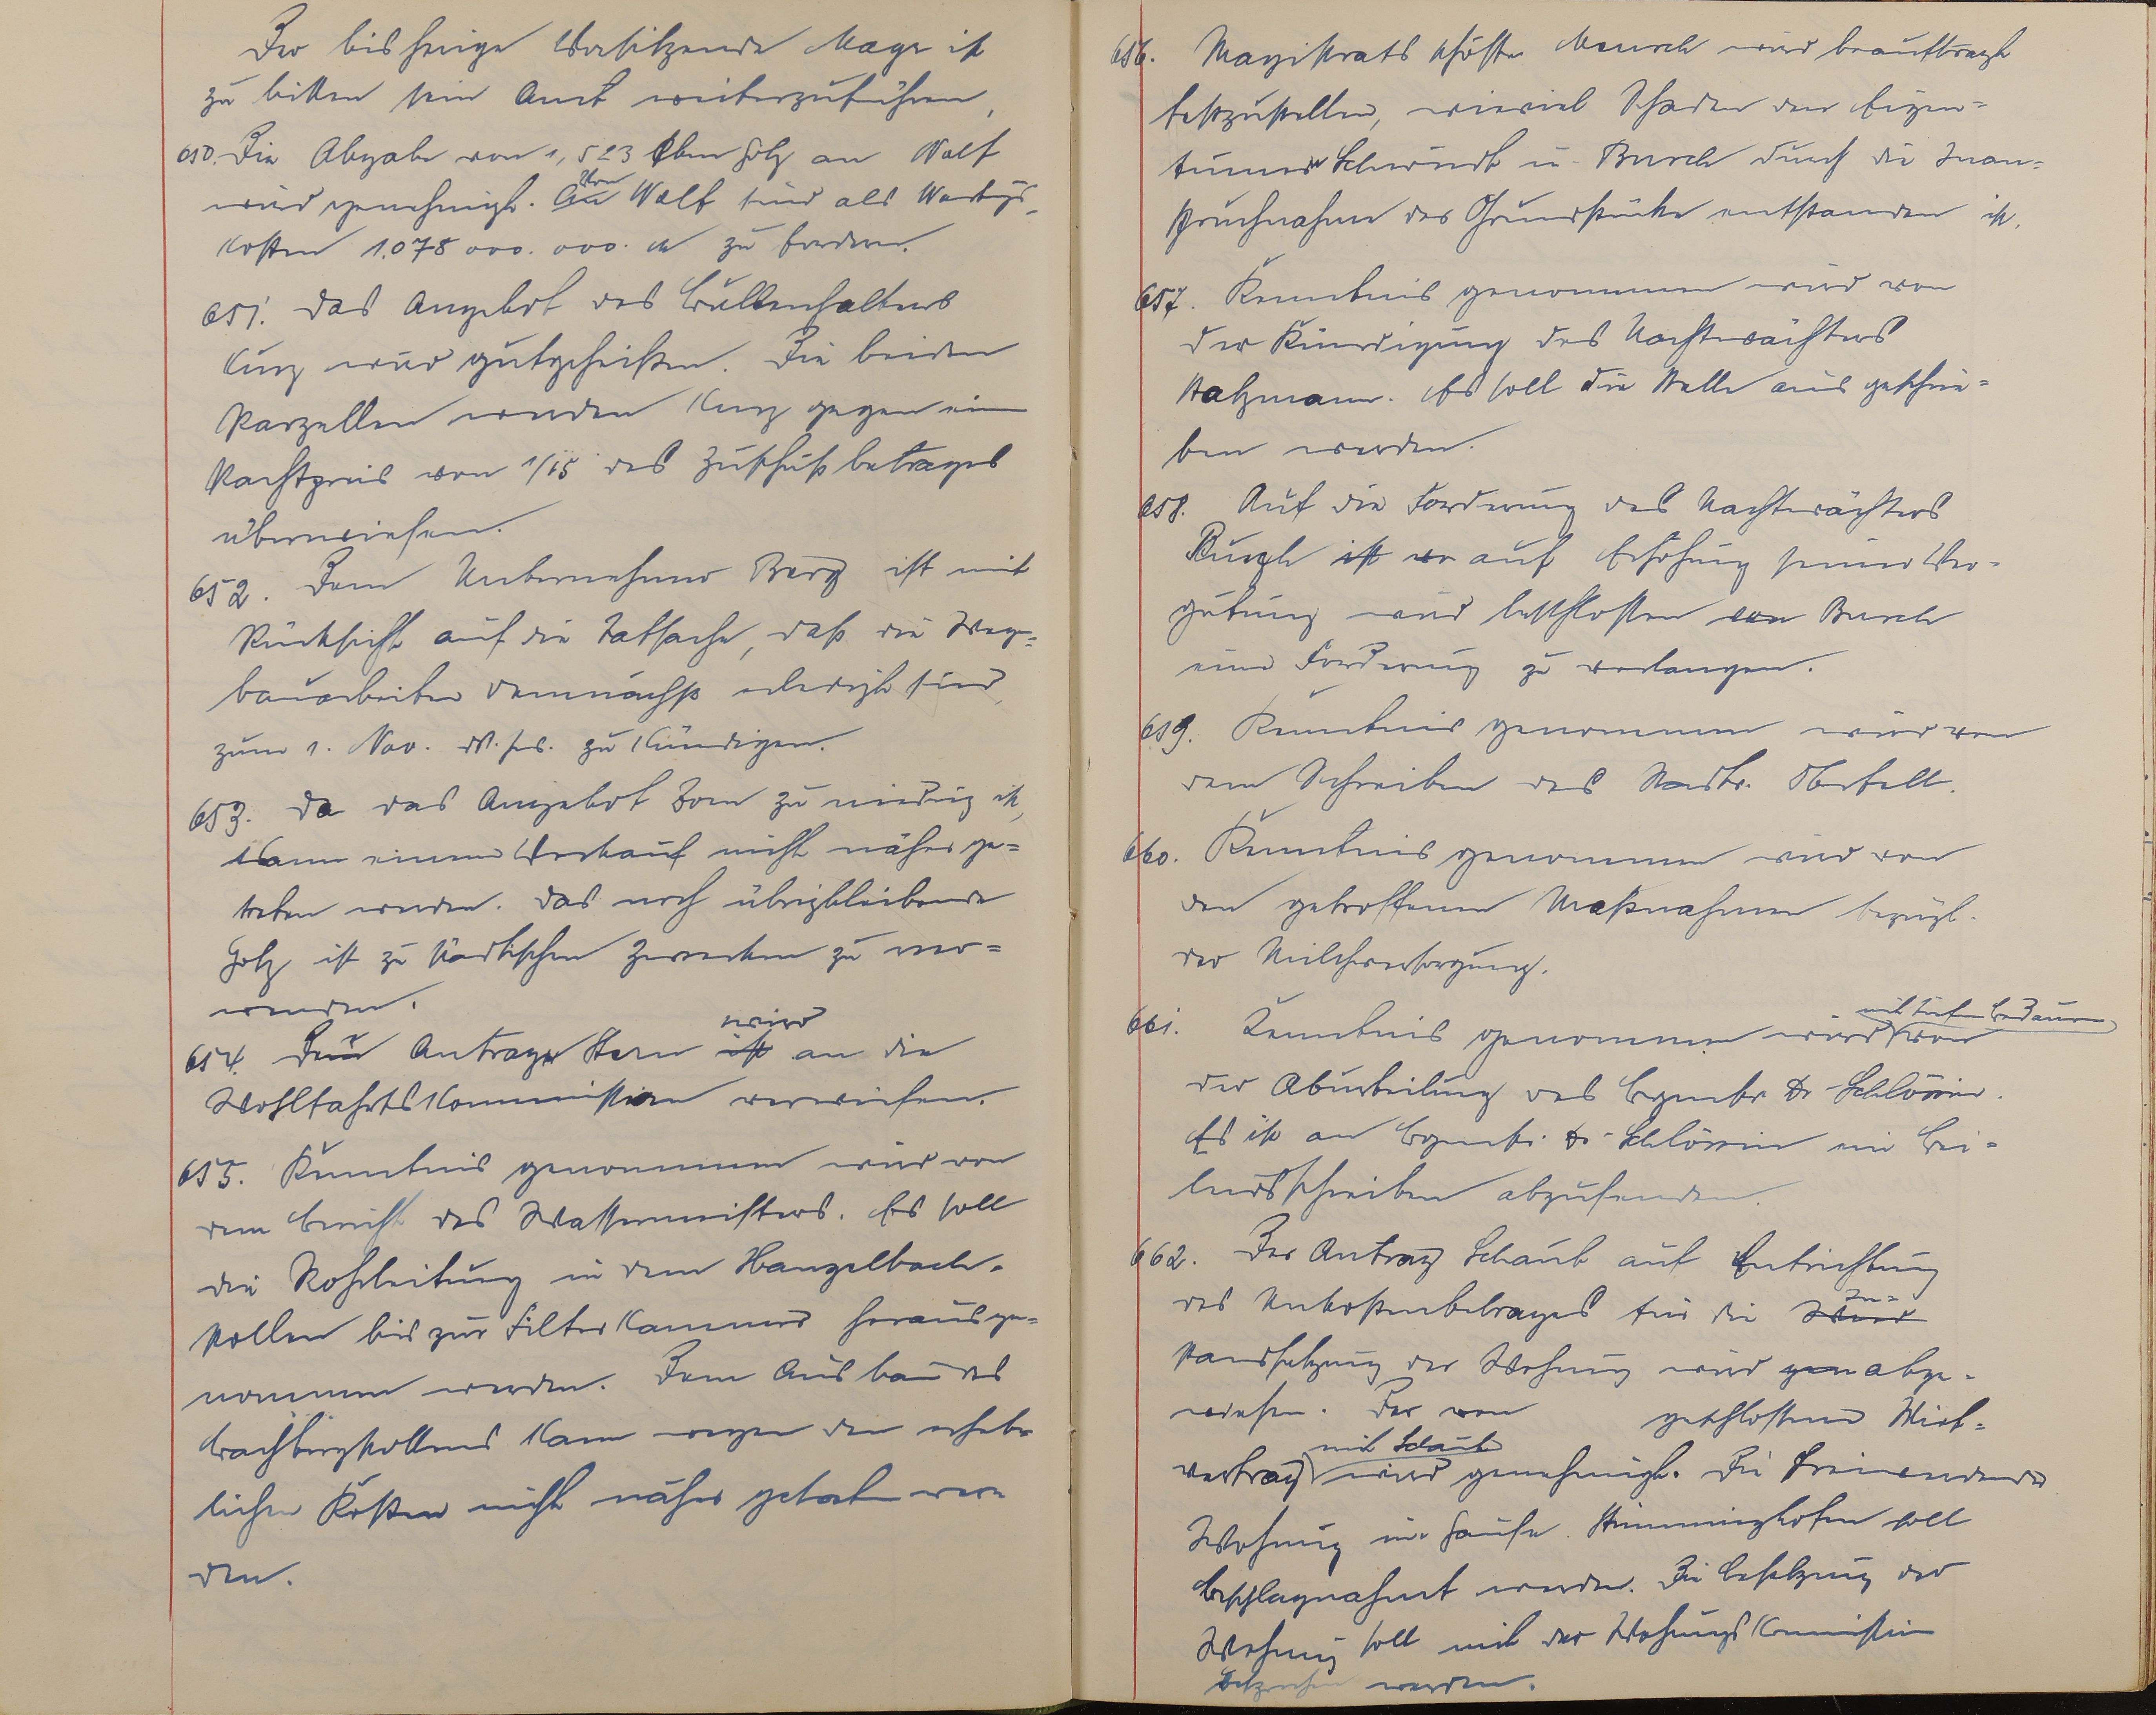 Der bisherige Vorsitzende Mayr ist
zu bitten sein Amt weiterzuführen,
650. Die Abgabe von 1,523 cbm Holz an Wolf
wird genehmigt. Von Wolf sind als
kosten 1.078 000. 000. M zu fordern.
651. Das Angebot des Bullenhalters
Kurz wird gutgeheißen. Die beiden
Parzellen werden Kurz gegen ein
Pachtpreis von 1/15 des Zuschußbetrages
überwiesen.
652. Dem Unternehmer Berg ist mit
Rücksicht auf die Tatsache, daß die Wege-
bauarbeiten demnächst erledigt sind,
zum 1. Nov. ds. Js. zu kündigen.
653. Da das Angebot Zorn zu niedrig ist,
kann einem Verkauf nicht näher ge-
treten werden. Das noch übrigbleibende
Holz ist zu städtischen Zwecken zu ver-
wenden.
654. Der Antrag Stern wird an die
Wohlfahrtskommission verwiesen.
655. Kenntnis genommen wird von
dem Bericht des Wassermeisters. Es soll
die Rohrleitung in dem Hangelbach-
stollen bis zur Filterkammer herausge-
nommen werden. Dem Ausbau des
Bachbergstollens kann wegen den erheb-
lichen Kosten nicht näher getreten wer-
den.
656. Magistratsschöffe Mensch wird beauftragt
festzustellen, wieviel Schaden den Eigen-
tümer Schwindt u. Busch durch die Inan-
spruchnahme des Grundstücks entstanden ist.
657. Kenntnis genommen wird von
der Kündigung des Nachtwächters
Stahmann. Es soll die Stelle ausgeschrie-
ben werden.
658. Auf die Forderung des Nachtwächters
Busch auf Erhöhung seiner Ver-
gütung wird beschlossen von Busch
eine Forderung zu verlangen.
659. Kenntnis genommen wird von
dem Schreiben des Stadtv. Oberfell.
660. Kenntnis genommen wird von
den getroffenen Maßnahmen bezügl.
der Milchversorgung.
661. Kenntnis genommen wird mit tiefem Bedauern von
der Aburteilung des Bgmstr Dr Schlönin.
Es ist an Bgmstr. Dr. Schlönin ein Bei-
leidsschreiben abzusenden.
662. Der Antrag Schaub auf Entrichtung
des Unkostenbetrages für die In-
standsetzung der Wohnung wird abge-
wiesen. Der von geschlossene Miet-
vertrag mit Schaub wird genehmigt. Die freiwerdende
Wohnung im Hause Stimminghofen soll
beschlagnahmt werden. Die Besetzung der
Wohnung soll mit der Wohnungskommission
besprochen werden.